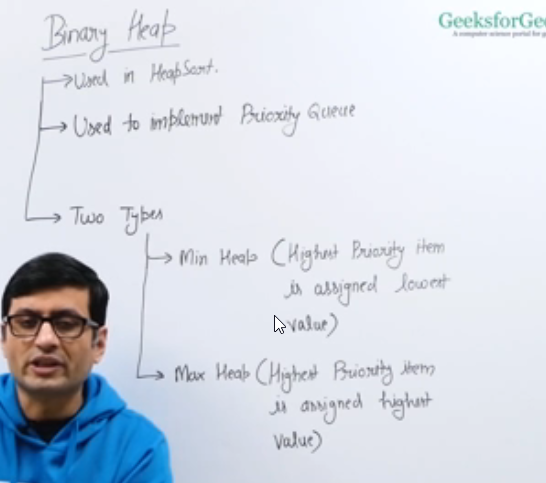 GeeksforGee
A computer science portal for g
Binary Heap
Used in HeapSort.
Used to implement Priority Queue
Two Types
Min Heap (Highest Priority item
is assigned lowest
value)
Max Heap (Highest Priority item
is assigned highest
value)